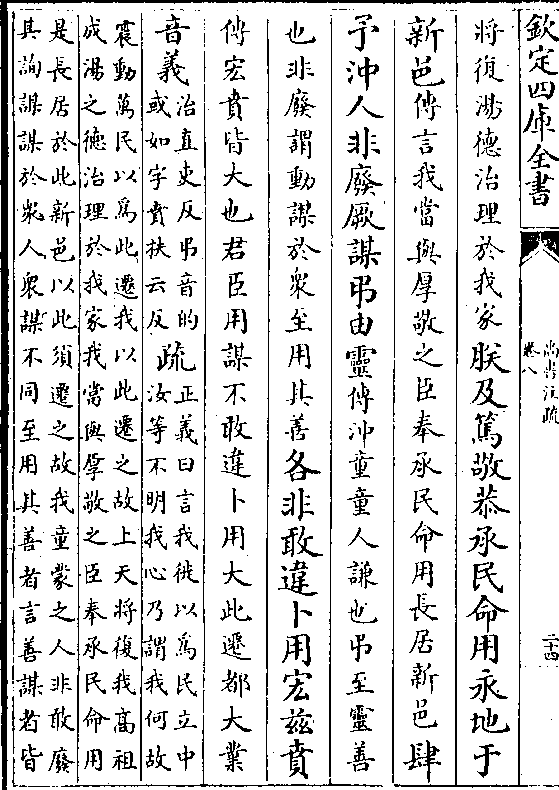 欽定四庫全書
尚書注疏
卷八
二十四
將復湯德治理於我家朕及篤敬恭承民命用永地于
新邑傳言我當與厚敬之臣奉承民命用長居新邑肆
予沖人非廢厥謀弔由靈傳沖童童人謙也弔至靈善
也非廢謂動謀於衆至用其善各非敢違卜用宏茲賁
傳宏賁皆大也君臣用謀不敢違卜用大此遷都大業
音義治直吏反弔音的
或如字賁扶云反疏正義曰言我徙以爲民立中
汝等不明我心乃謂我何故
震動萬民以爲此遷我以此遷之故上天將復我高祖
成湯之德治理於我家我當與厚敬之臣奉承民命用
是長居於此新邑以此須遷之故我童蒙之人非敢廢
其詢謀謀於衆人衆謀不同至用其善者言善謀者皆